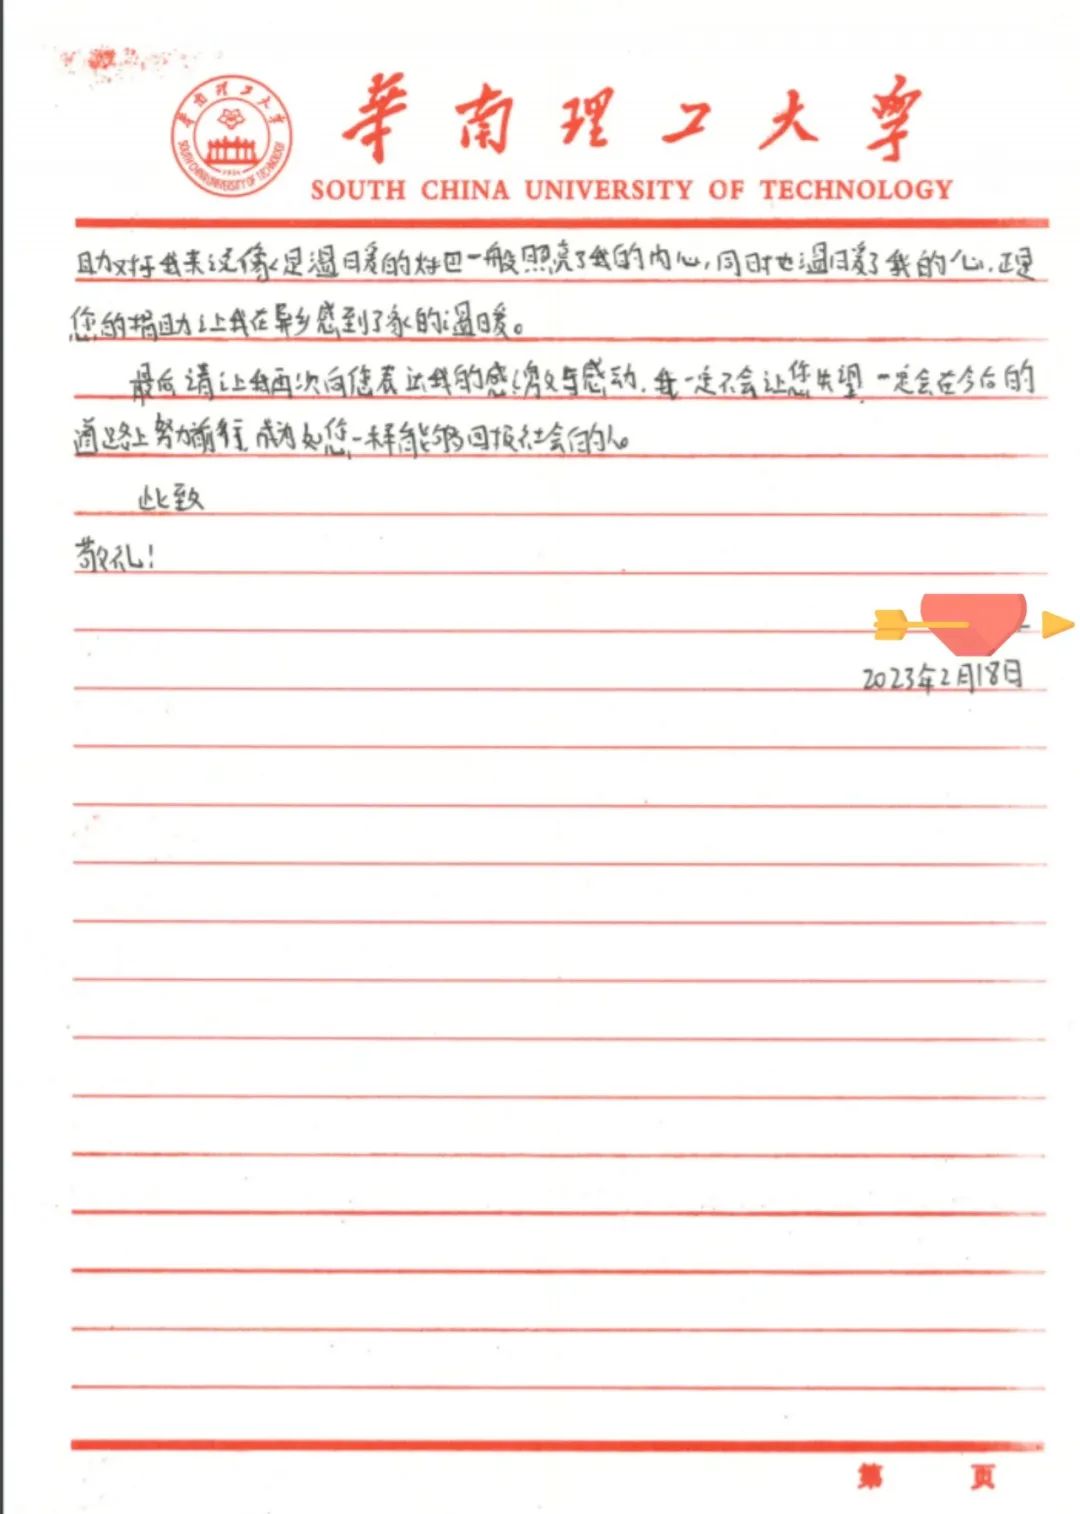 華南理工大学
SOUTH CHINA UNIVERSITY OF TECHNOLOGY
华南理工大学
SOUTH CHINA UNIVERSITY OF TECHNOLOGY
1934
助对于我来说像是温暖的灶巴一般照亮了我的内心,同时也温暖了我的心.正是
您的捐助让我在异乡感到了家的温暖。
最后请让我再次向您表达我的感激与感动.我一定不会让您失望 一定会在今后的
道路上努力前行,成为如您一样能够回报社会的人。
此致
敬礼!
2023年2月18日
第 页